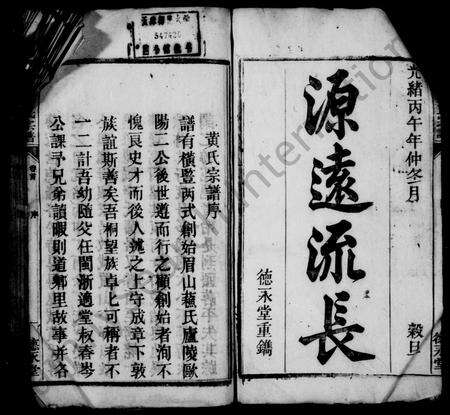 光緒丙午年仲冬月
穀旦
源遠流長
德永堂重鐫
黃氏宗譜序
譜有橫豎兩式創始眉山蘇氏廬陵歐
陽二公後世遵而行之顧創始者洵不
愧良史才而後人述之上守成章下敦
族誼斯善矣吾桐望族卓卓可稱者不
一二計吾幼隨父任閩浙適堂叔春岑
公課予兄弟讀暇則道鄉里故事并各
547426